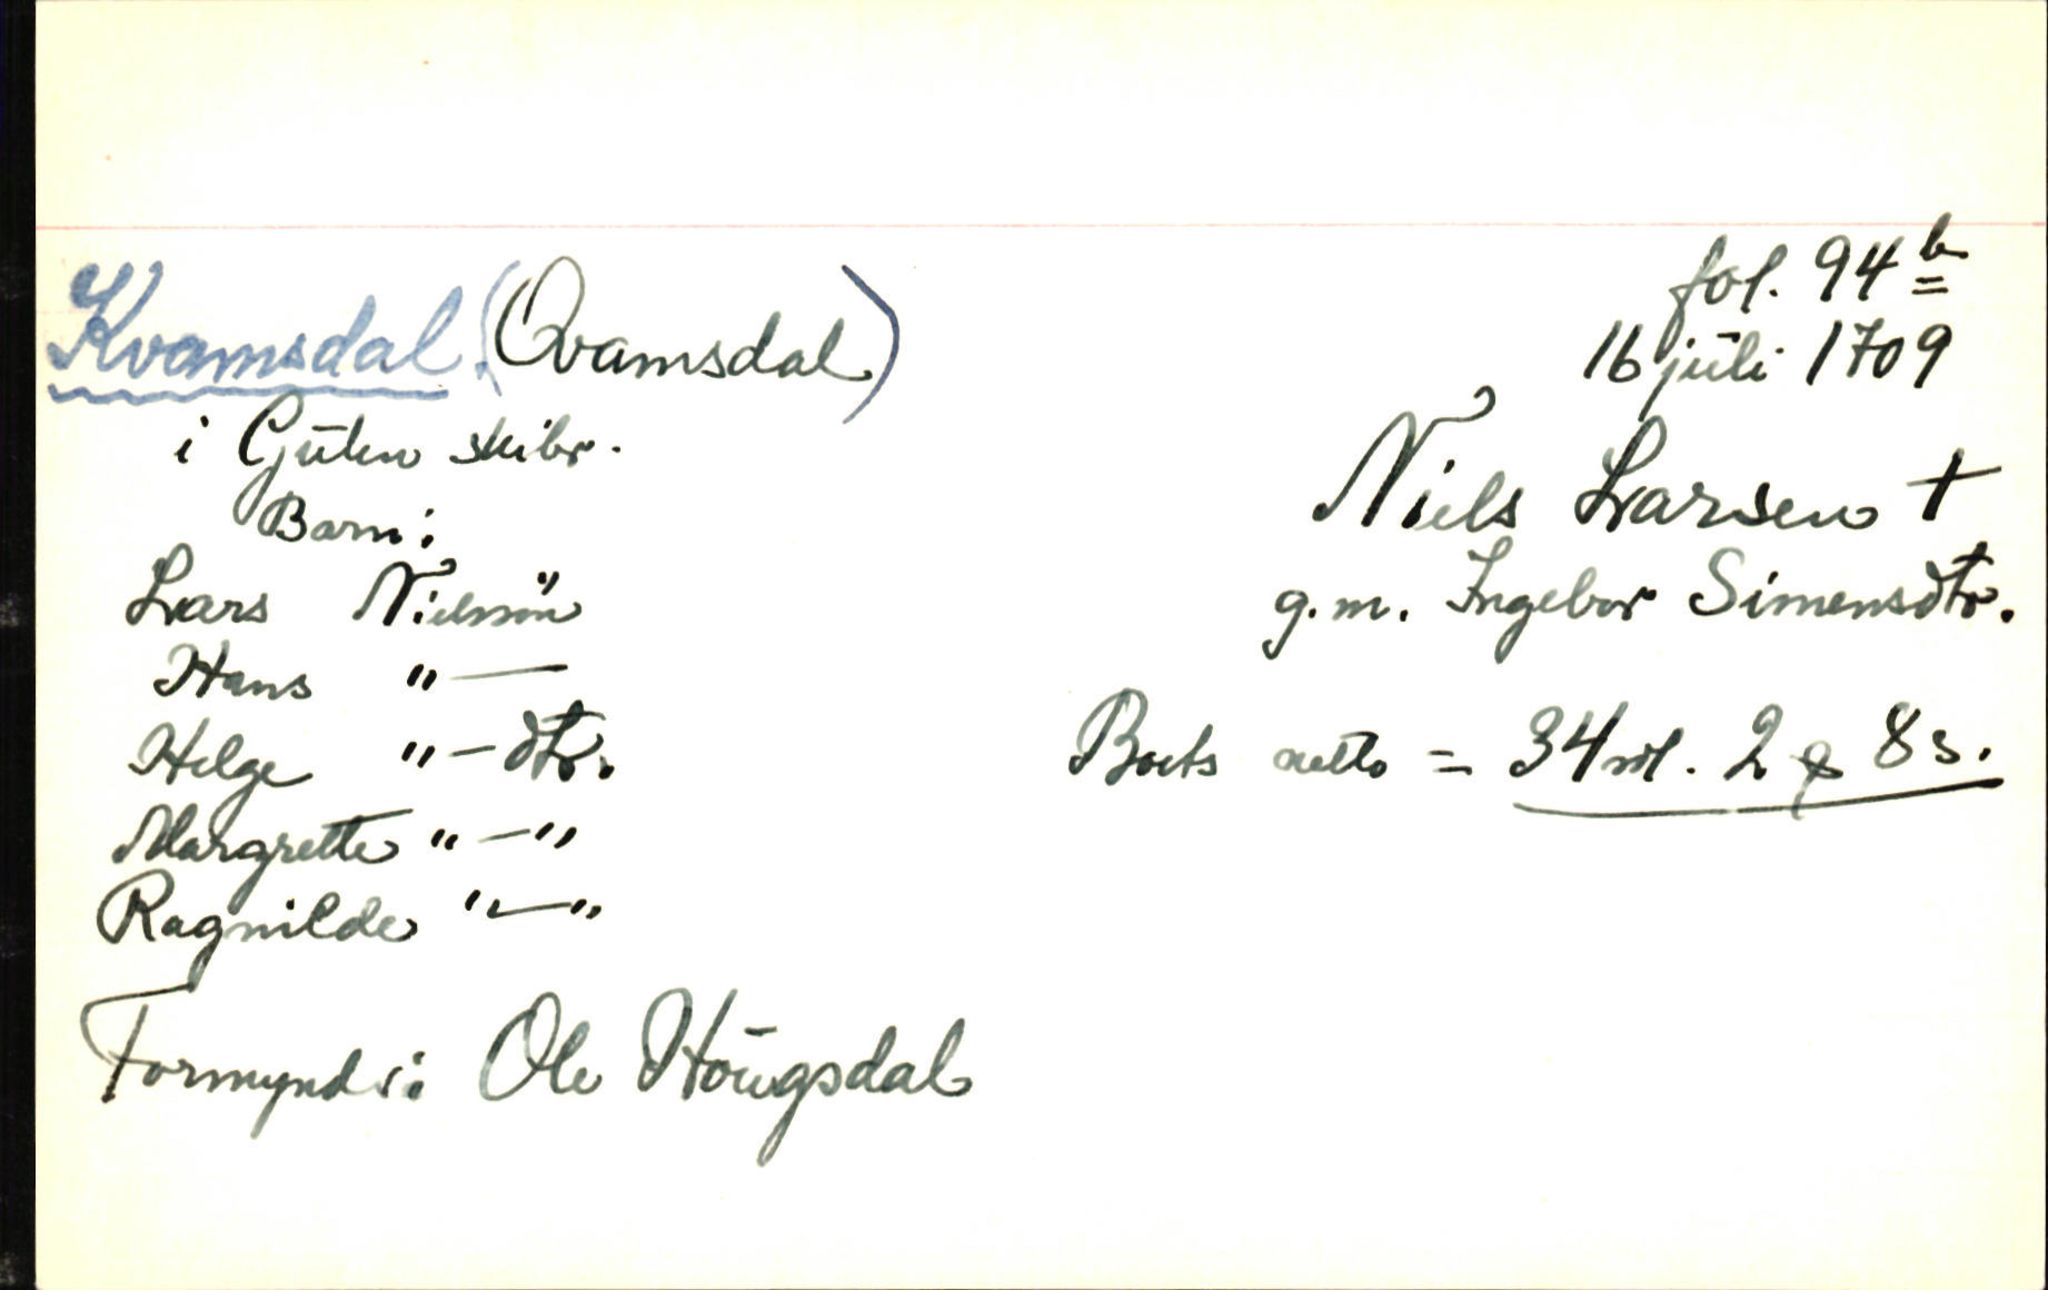 fol. 94 b
16 juli 1709
Kvamsdal (Qvamsdal)
i Gulen skibr.
Niels Larsen †
g.m. Ingebor Simensdtr.
Barn:
Lars Nielssön
Hans "—
Helge "— dtr.
Margrette " — "
Ragnilde " — "
Boets netto = 34 rdl. 2 8 s.
Formyndr: Ole Hougsdal